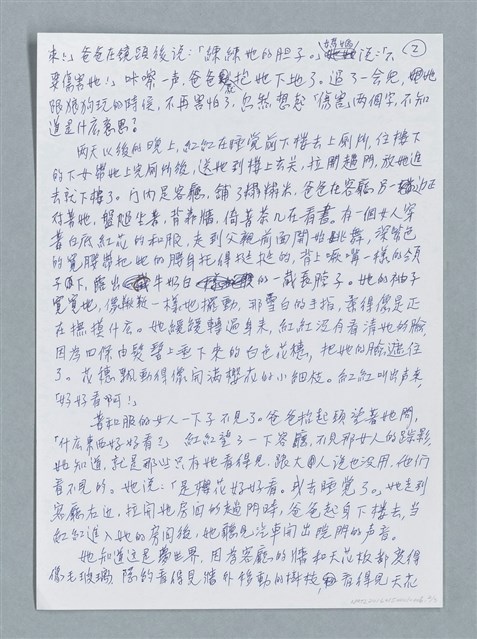 ②
来!」爸爸在镜頭後说:「練練她的胆子。」媽媽说:「不
要傷害她!」咔嚓一声,爸爸抱她下地了。过了一会兒,她
跟狼狗玩的時候,不再害怕了,忽然想起「傷害」两個字,不知
道是什么意思?
两天以後的晚上,紅紅在睡覚前下樓去上厠所,住樓下
的下女帶她上完厠所後,送她到樓上玄关,拉開趟門,放她進
去就下樓了。门内是客廳,鋪了榻榻米,爸爸在客廳另一边
对著她,盤腿坐著,背靠牆,倚著茶几在看書。有一個女人穿
著白底紅花的和服,走到父親前面開始跳舞,深紫色
的寬腰帶把她的腰身托得挺挺的,背上
下,露出牛奶白的一截長脖子。她的袖子
寬寬地,像一樣地擺動,那雪白的手指,柔得像是正
在撫摸什么。她緩緩轉過身来,紅紅沒有看清她的臉,
因為四條由髮髻上垂下來的白色花穗,把她的臉遮住
了。花穗飄動得像開滿櫻花的小细枝。紅紅叫出声来,
「好好看啊!」
著和服的女人一下子不見了。爸爸抬起頭望著她問,
「什么東西好好看?」紅紅望了一下客廳,不見那女人的踪影,
她知道,就是那些只有她看得見,跟大人说也没用,他们
看不見的。她说:「是櫻花好好看。我去睡覚了。」她走到
客廳右边,拉開她房間的趟門時,爸爸起身下樓去,当
紅紅進入她的房間後,她聽見汽車開出院門的声音。
她知道这是夢世界,因為客廳的牆和天花板都变得
像毛玻璃,隱約看得見牆外移動的樹枝,看得見天花